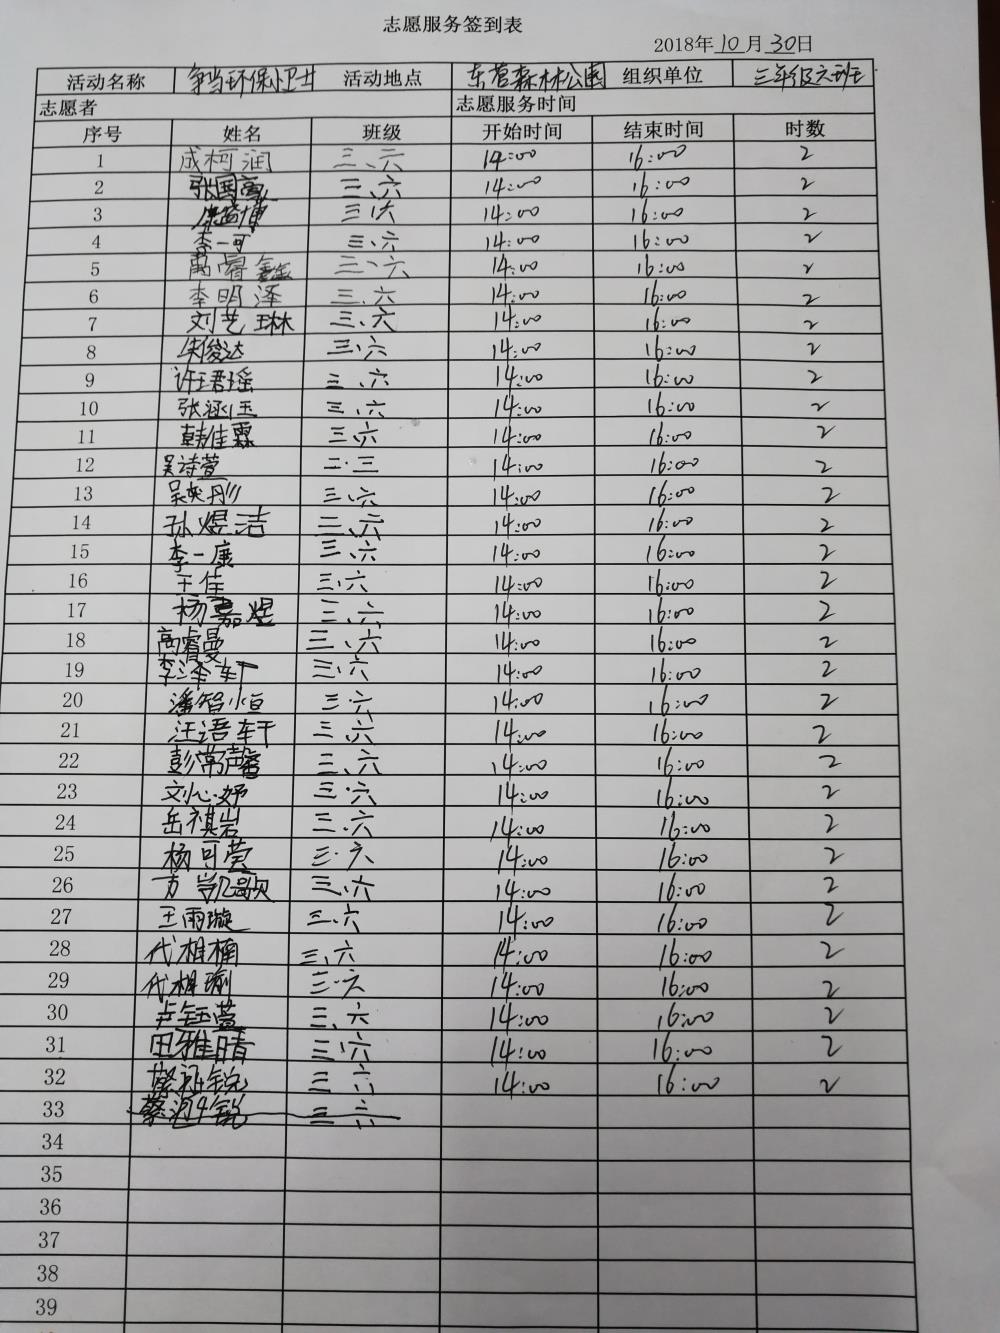 志愿服务签到表
2018年10月30日
活动名称 争当环保小卫士 活动地点 东营森林公园 组织单位 三年级六班
志愿者 志愿服务时间
序号 姓名 班级 开始时间 结束时间 时数
1 成柯润 三、六 14:00 16:00 2
2 张国高 三、六 14:00 16:00 2
3 三、六 14:00 16:00 2
4 李一可 三、六 14:00 16:00 2
5 睿鑫 三、六 14:00 16:00 2
6 李明泽 三、六 14:00 16:00 2
7 刘艺琳 三、六 14:00 16:00 2
8 朱俊达 三、六 14:00 16:00 2
9 许珺瑶 三、六 14:00 16:00 2
10 张涵钰 三、六 14:00 16:00 2
11 韩佳霖 三、六 14:00 16:00 2
12 吴诗萱 二·三 14:00 16:00 2
13 吴奕彤 三、六 14:00 16:00 2
14 孙煜洁 三、六 14:00 16:00 2
15 李一康 三、六 14:00 16:00 2
16 王佳 三·六 14:00 16:00 2
17 杨嘉煜 三、六 14:00 16:00 2
18 高睿曼 三、六 14:00 16:00 2
19 李泽轩 三·六 14:00 16:00 2
20 潘智恒 三·六 14:00 16:00 2
21 汪语轩 三、六 14:00 16:00 2
22 彭常馨 三、六 14:00 16:00 2
23 刘心妤 三·六 14:00 16:00 2
24 岳祺岩 三·六 14:00 16:00 2
25 杨可莹 三·六 14:00 16:00 2
26 方凯歌 三、六 14:00 16:00 2
27 王雨璇 三·六 14:00 16:00 2
28 代相楠 三、六 14:00 16:00 2
29 代相瑜 三·六 14:00 16:00 2
30 卢钰萱 三、六 14:00 16:00 2
31 田雅晴 三·六 14:00 16:00 2
32 锐 三 六 14:00 16:00 2
33 蔡 锐 三 六
34
35
36
37
38
39